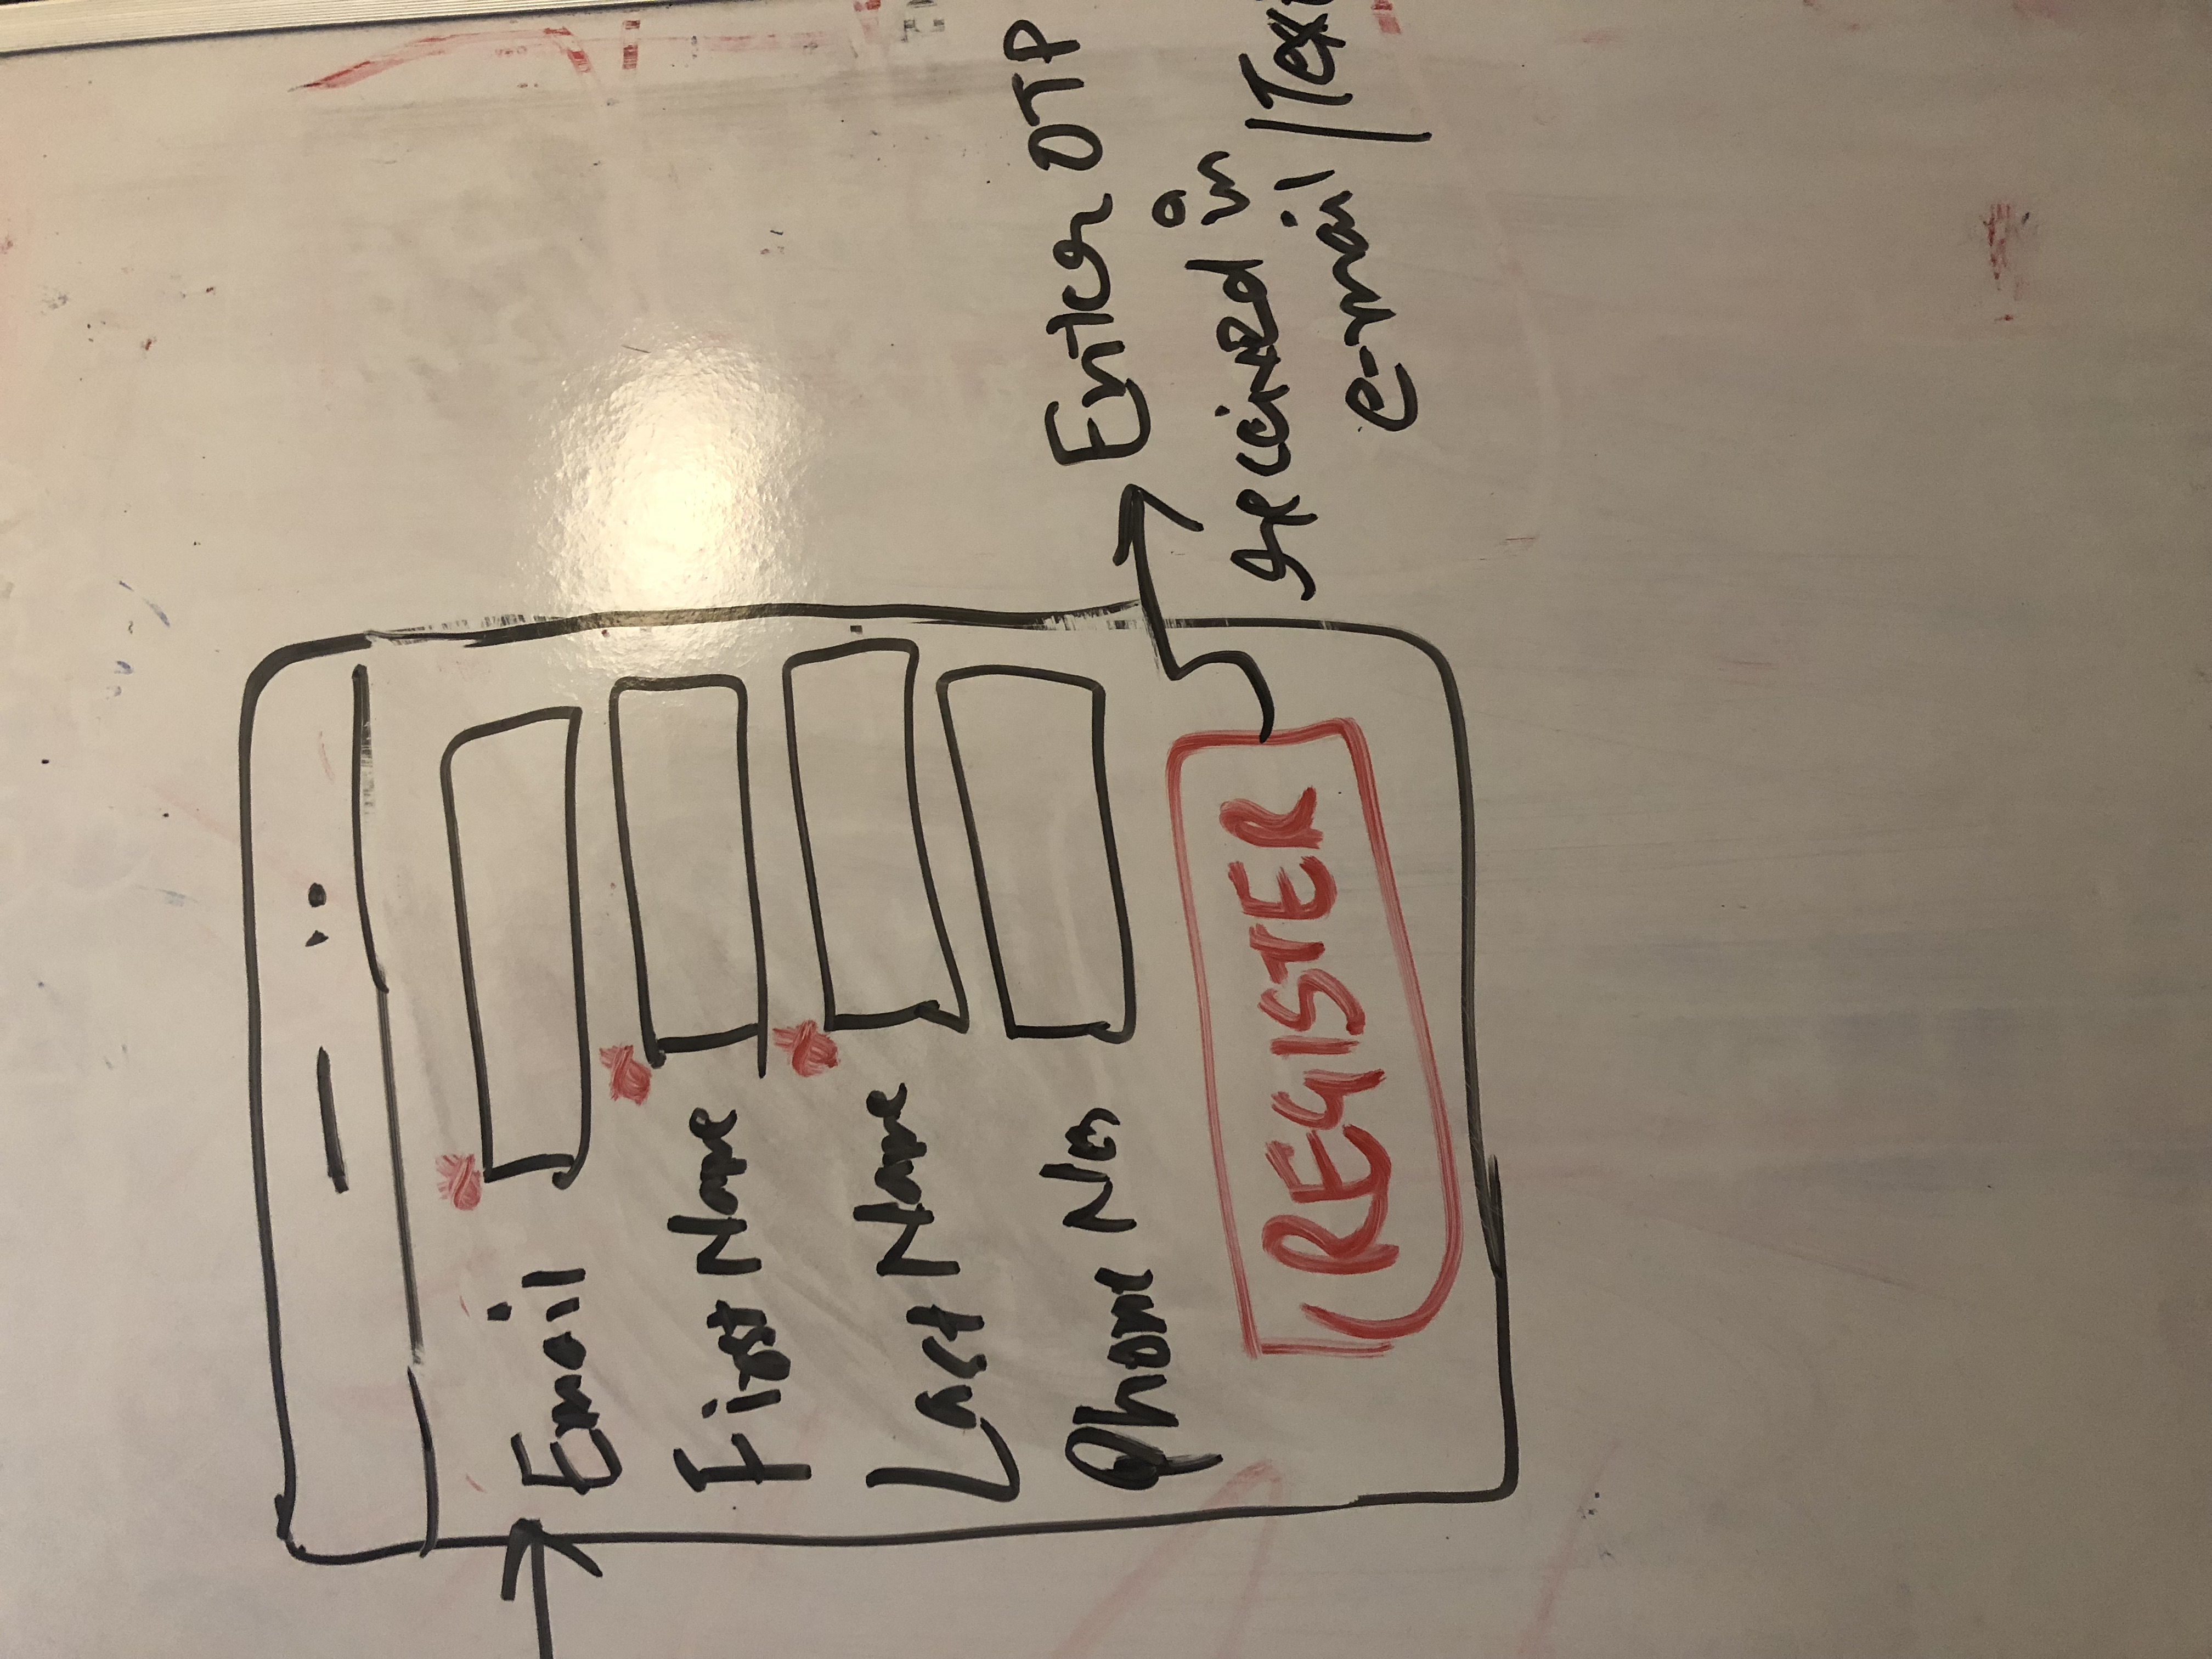 Email
First Name
Last Name
Phone No
REGISTER
Enter OTP
received in
e-mail/Text